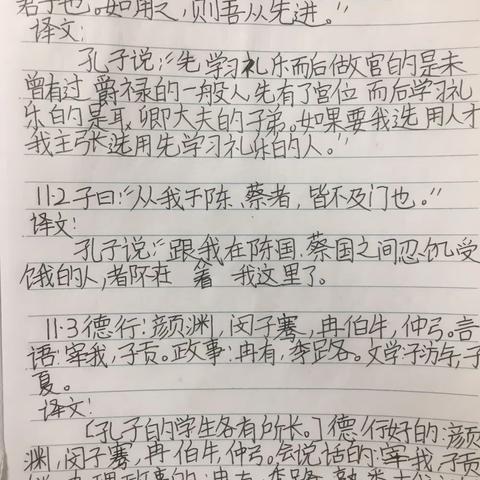 君子也。如用之，则吾从先进。”
译文：
孔子说：“先学习礼乐而后做官的是未
曾有过爵禄的一般人，先有了官位而后学习礼
乐的是卿大夫的子弟。如果要我选用人才
我主张选用先学习礼乐的人。”
11.2子曰：“从我于陈、蔡者，皆不及门也。”
译文：
孔子说：“跟我在陈国、蔡国之间忍饥受
饿的人，都不在我这里了。
11.3德行：颜渊，闵子骞，冉伯牛，仲弓。言
语：宰我，子贡。政事：冉有，季路。文学：子游，子
夏。
译文：
［孔子的学生各有所长。］德行好的：颜
渊，闵子骞，冉伯牛，仲弓。会说话的：宰我，子贡